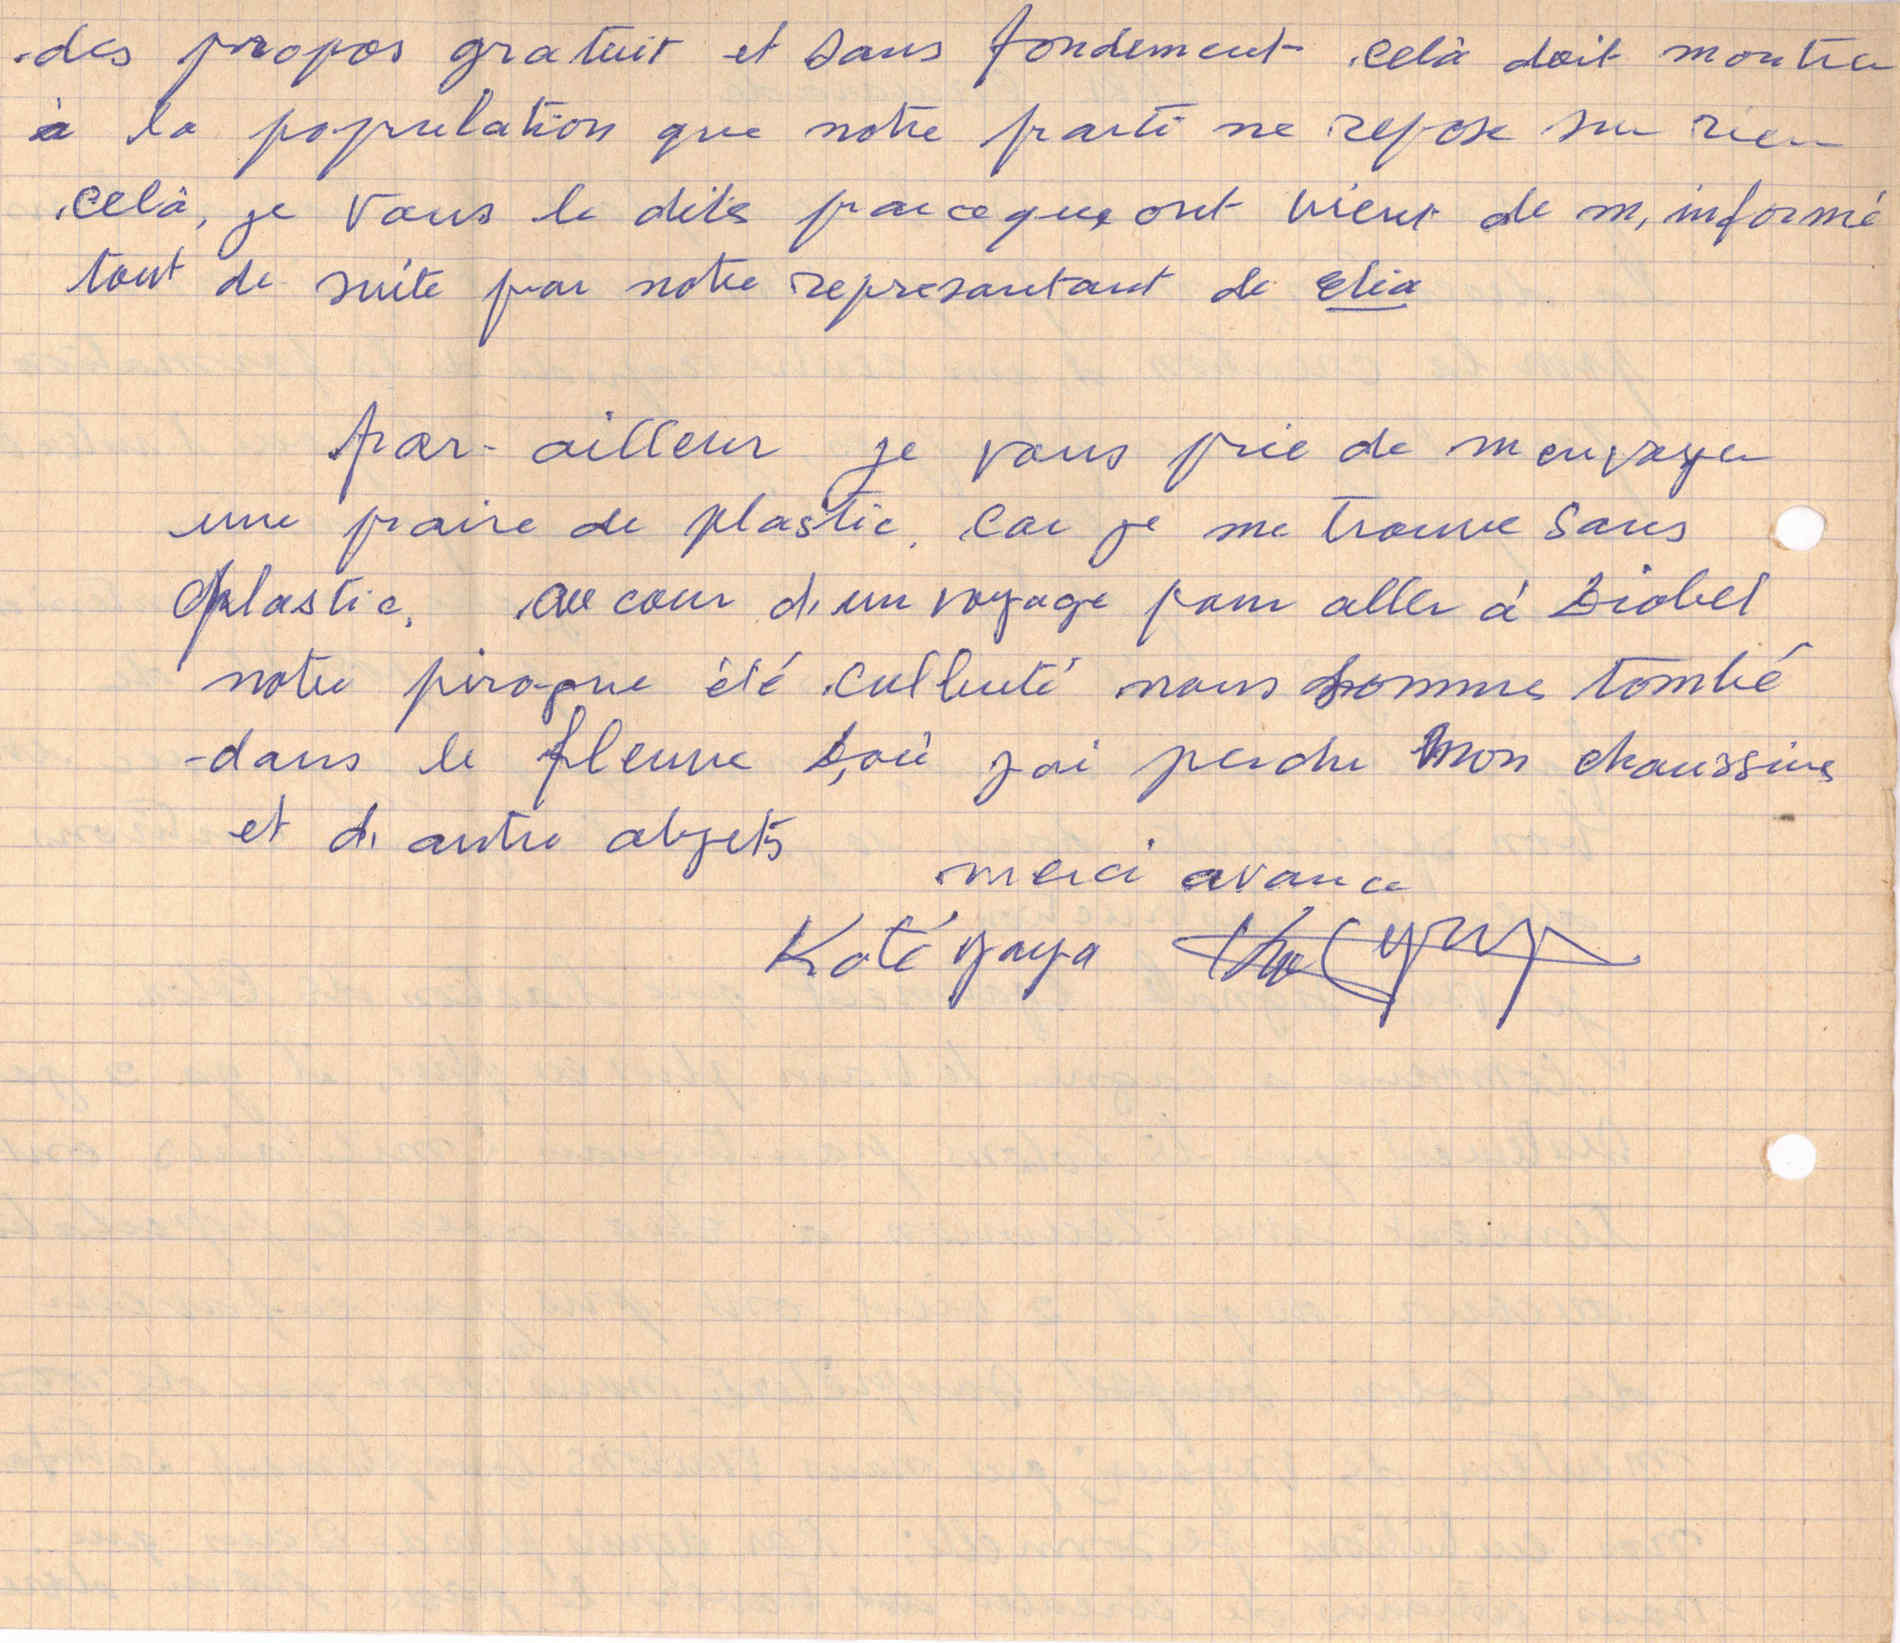 des propos gratuit et sans fondement celà doit montrer
à la population que notre parti ne repose sur rien
celà, je vous le dits parceque, ont vient de m, informé
tout de suite par notre represantant de Elia
par-ailleur je vous prie de menvoyer
une paire de plastic, car je me trouve sans
plastic, au cour d, un voyage pour aller à Diobel
notre pirogue été culbuté nous sommes tombé
dans le fleuve d,où j'ai perdu mon chaussures
et d, autre objets
merci avance
Koté yaya